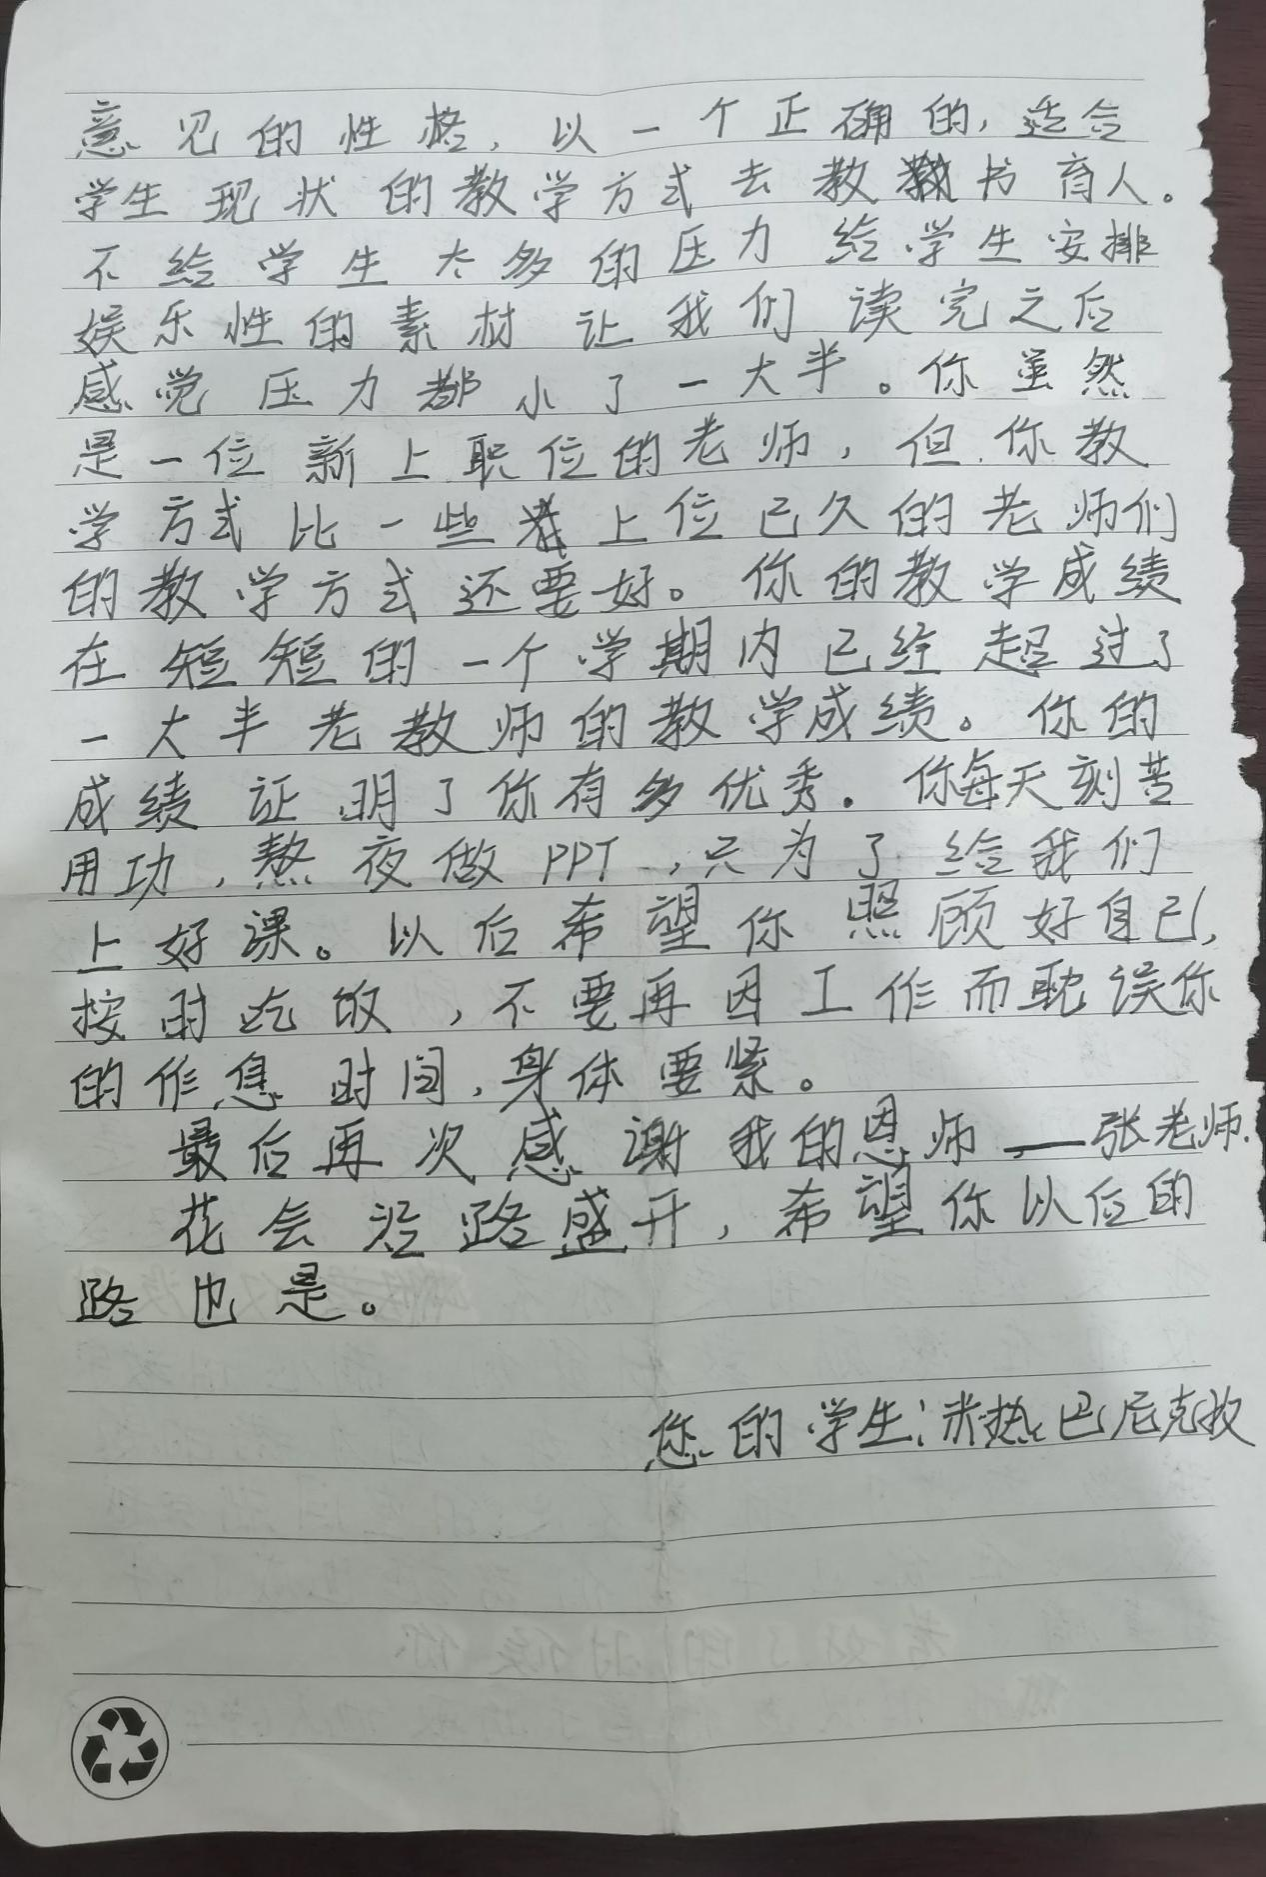 意见的性格，以一个正确的，适合
学生现状的教学方式去教书育人。
不给学生太多的压力 给学生安排
娱乐性的素材 让我们读完之后
感觉压力都小了一大半。你虽然
是一位新上职位的老师，但你教
学方式比一些上位已久的老师们
的教学方式还要好。你的教学成绩
在短短的一个学期内已经超过了
一大半老教师的教学成绩。你的
成绩证明了你有多优秀。你每天刻苦
用功，熬夜做PPT，只为了给我们
上好课。以后希望你照顾好自己，
按时吃饭，不要再因工作而耽误你
的作息时间，身体要紧。
最后再次感谢我的恩师——张老师.
花会沿路盛开，希望你以后的
路也是。
您的学生：米热巴尼克孜